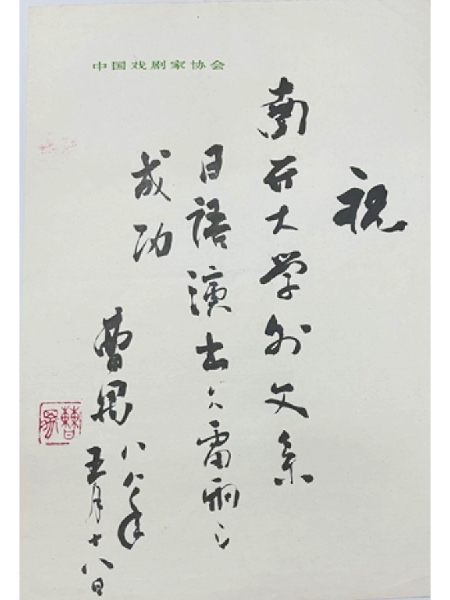 中国戏剧家协会
祝
南开大学外文系
日語演出《雷雨》
成功
曹禺 八八年
五月十八日
曹禺